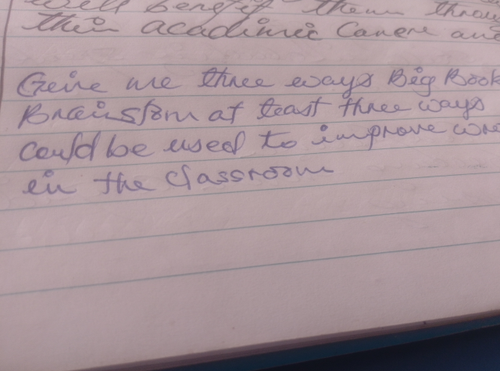 will benefit them
their academic Career and
Give me three ways Big Book
Brainstorm at least three ways
could be used to improve
in the classroom